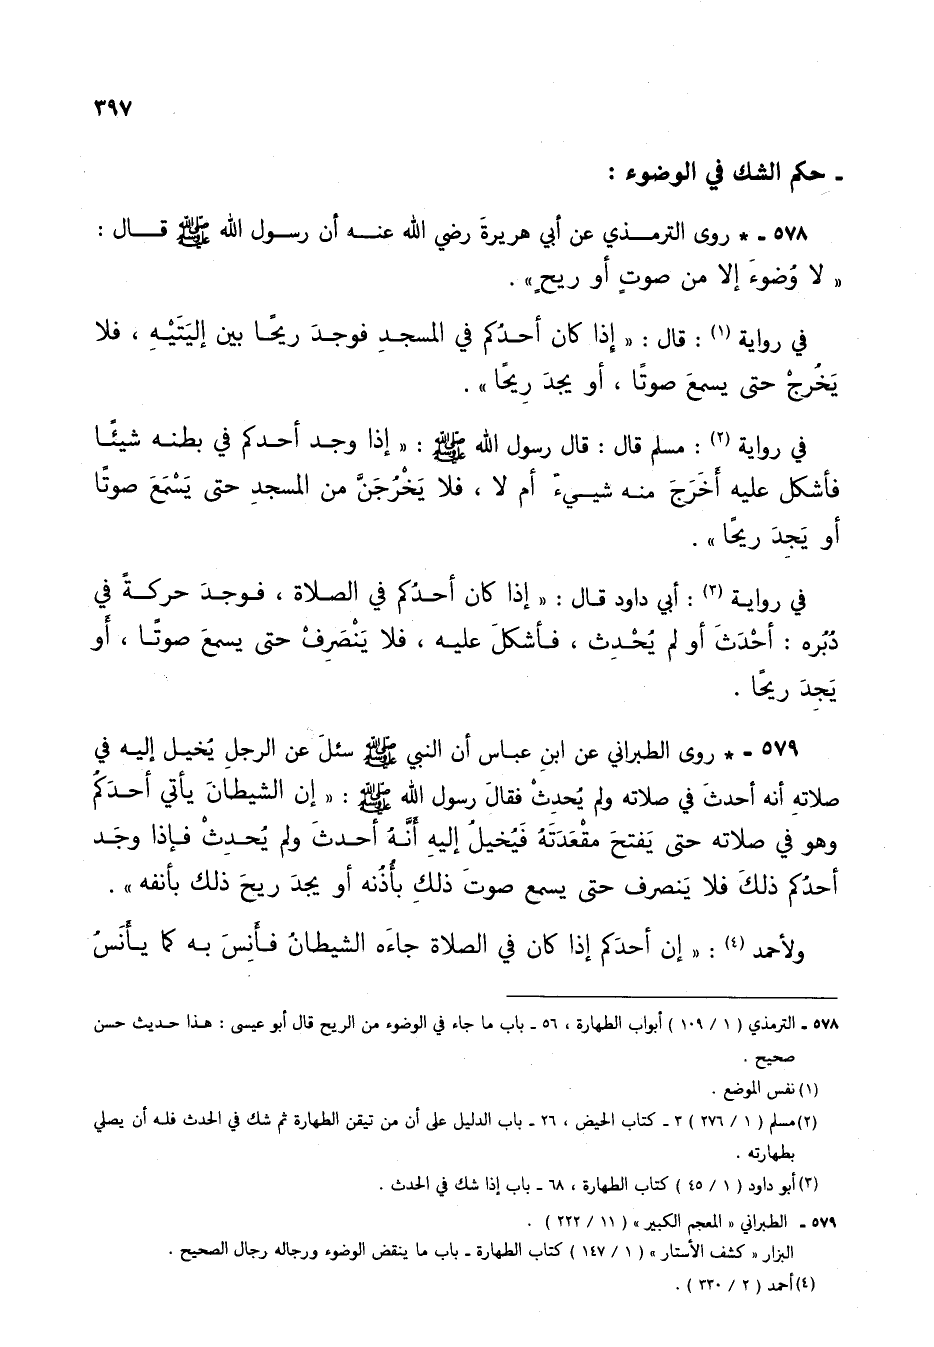 ٣٩٧
ـ حكم الشك في الوضوء :
٥٧٨ ـ * روى الترمـــذي عن أبي هريرةَ رضي الله عنـــه أن رســول الله ﷺ قـــال :
« لا وُضوءَ إلا من صوتٍ أو ريحٍ» .
في رواية (١) : قال : « إذا كان أحـدُكم في المسجـدِ فوجـدَ ريحًـا بين إليَتَيْـهِ ، فلا
يَخْرُجْ حتى يسمعَ صوتًا ، أو يجدَ رِيحًا» .
في رواية (٢) : مسلم قال : قال رسول الله ﷺ : « إذا وجـد أحـدكم في بطنـه شيئًـا
فأشكل عليه أَخَرَجَ منـه شيـيءٌ أم لا ، فلا يَخْرُجَنَّ من المسجدِ حتى يَسْمَعَ صوتًا
أو يَجِدَ ريحًا» .
في روايـة (٣) : أبي داود قـال : « إذا كان أحـدُكم في الصـلاة ، فـوجـدَ حركـةً في
دُبُره : أحْدَثَ أو لم يُحْـدِث ، فـأشكلَ عليـه ، فلا يَنْصَرِفْ حتى يسمعَ صوتًـا ، أَو
يَجِدَ ريحًا .
٥٧٩ ـ * روى الطبراني عن ابنِ عبـاس أن النبي ﷺ سئلَ عن الرجلِ يُخيـل إليـه في
صلاتهِ أنه أحدثَ في صلاته ولم يُحدِثْ فقالَ رسول الله ﷺ : « إن الشيطانَ يأتي أحـدَكُم
وهو في صلاته حتى يَفتحَ مقْعَدَتَهُ فَيُخيلُ إليهِ أَنَّـهُ أحـدثَ ولم يُحـدِثْ فـإذا وجَـد
أحدُكم ذلكَ فلا يَنصرف حتى يسمع صوتَ ذلكَ بأُذُنه أو يجدَ ريحَ ذلك بأنفه» .
ولأحمد (٤) : « إن أحدَكم إذا كان في الصلاة جاءَه الشيطانُ فـأَنِسَ بـه كا يـأَنَسُ
٥٧٨ ـ الترمذي ( ١ / ١٠٩ ) أبواب الطهارة ، ٥٦ ـ باب ما جاء في الوضوء من الريح قال أبو عيسى : هـذا حـديث حسن
صحيح .
(١) نفس الموضع .
(٢) مسلم ( ١ / ٢٧٦ ) ٣ ـ كتاب الحيض ، ٢٦ ـ باب الدليل على أن من تيقن الطهارة ثم شك في الحدث فلـه أن يصلي
بطهارته .
(٣) أبو داود ( ١ / ٤٥ ) كتاب الطهارة ، ٦٨ ـ باب إذا شك في الحدث .
٥٧٩ ـ الطبراني « المعجم الكبير » ( ١١ / ٢٢٢ ) .
البزار « كشف الأستار » ( ١ / ١٤٧ ) كتاب الطهارة ـ باب ما ينقض الوضوء ورجاله رجال الصحيح .
(٤) أحمد ( ٢ / ٣٣٠ ) .